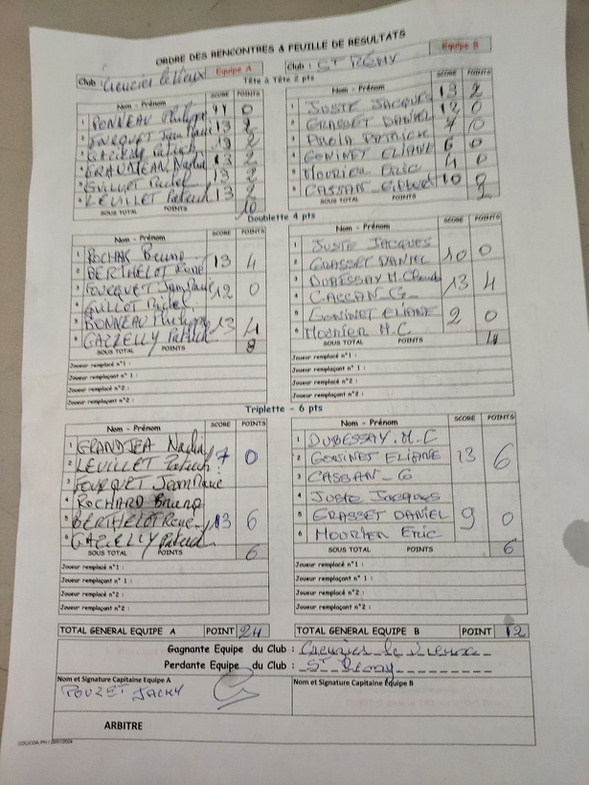 ORDRE DES RENCONTRES & FEUILLE DE RESULTATS
Club : Equipe A
Club : ST RÉMY Equipe B
Tête à Tête 2 pts
Nom - Prénom SCORE POINTS
1 BONNEAU Philippe 11 0
2 FOUCQUET Jean Paul 13 2
3 13 2
4 13 2
5 GUILLET 13 2
6 LEUILLET Patrick 13 2
SOUS TOTAL POINTS 10
Nom - Prénom SCORE POINTS
1 JUSTE JACQUES 13 2
2 GRASSET DANIEL 12 0
3 PATRICK 7 0
4 GONINET ELIANE 6 0
5 MOURIER Eric 4 0
6 CASSAN 10 0
SOUS TOTAL POINTS 2
Doublette 4 pts
Nom - Prénom SCORE POINTS
1 ROCHAR Bruno
2 BERTHELOT René 13 4
3 FOUCQUET Jean Paul
4 GUILLET 12 0
5 BONNEAU Philippe
6 GAZZELLY Patrick 13 4
SOUS TOTAL POINTS 8
Joueur remplacé n°1 :
Joueur remplaçant n°1 :
Joueur remplacé n°2 :
Joueur remplaçant n°2 :
Nom - Prénom SCORE POINTS
1 JUSTE JACQUES
2 GRASSET DANIEL 10 0
3 DUBESSAY M. Claude
4 CASSAN G 13 4
5 GONINET ELIANE
6 MOURIER M.C 2 0
SOUS TOTAL POINTS 4
Joueur remplacé n°1 :
Joueur remplaçant n°1 :
Joueur remplacé n°2 :
Joueur remplaçant n°2 :
Triplette - 6 pts
Nom - Prénom SCORE POINTS
1 GRANDJEA
2 LEUILLET Patrick 7 0
3 FOUCQUET Jean Paul
4 ROCHARD Bruno
5 BERTHELOT René 13 6
6 GAZZELLY Patrick
SOUS TOTAL POINTS 6
Joueur remplacé n°1 :
Joueur remplaçant n°1 :
Joueur remplacé n°2 :
Joueur remplaçant n°2 :
Nom - Prénom SCORE POINTS
1 DUBESSAY. M. C
2 GONINET ELIANE 13 6
3 CASSAN - G
4 JUSTE Jacques
5 GRASSET DANIEL 9 0
6 MOURIER ERIC
SOUS TOTAL POINTS 6
Joueur remplacé n°1 :
Joueur remplaçant n°1 :
Joueur remplacé n°2 :
Joueur remplaçant n°2 :
TOTAL GENERAL EQUIPE A POINT 24
TOTAL GENERAL EQUIPE B POINT 12
Gagnante Equipe du Club :
Perdante Equipe du Club : St Remy
Nom et Signature Capitaine Equipe A
POUZET JACKY
Nom et Signature Capitaine Equipe B
ARBITRE